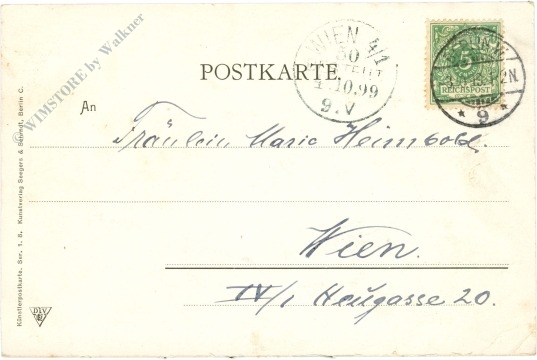 © WIMSTORE by Walkner
WIEN 4/1
50
4.10.99
9.V
5
REICHSPOST
9
POSTKARTE.
An
Fräulein Marie Heimbold.
Wien.
IV/1 Heugasse 20.
Künstlerpostkarte. Ser. 1. 6. Kunstverlag Seegers & Schmidt, Berlin C.